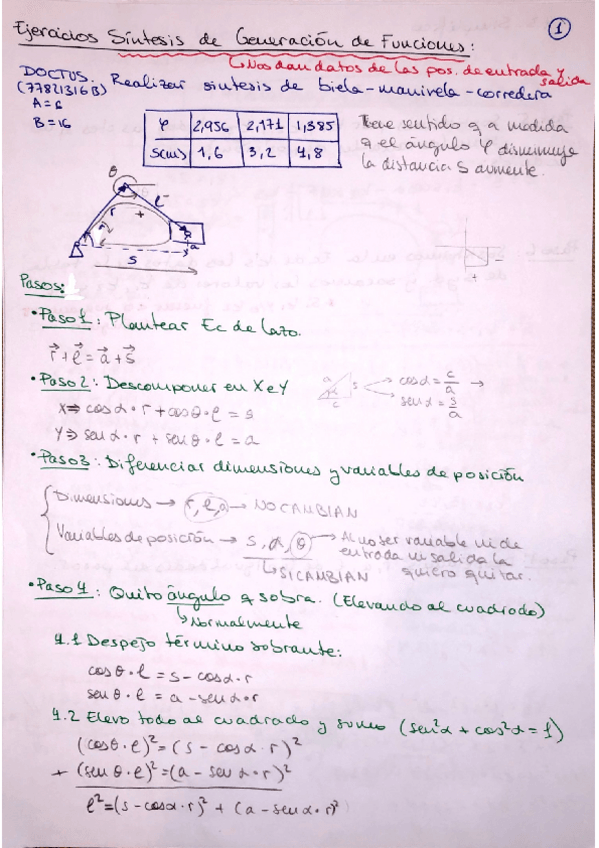 1
Ejercicios Síntesis de Generación de Funciones:
↳Nos dan datos de las pos. de entrada y salida
DOCTUS. Realizar sintesis de biela-manivela-corredera
(77821316B)
A=6
B=16
φ 2,956 2,171 1,385
S(m) 1,6 3,2 4,8
Tiene sentido q a medida
q el ángulo φ disminuye
la distancia S aumente.
θ
r
l
α
a
S
Pasos:
• Paso 1: Plantear Ec de lazo.
r + l = a + s
• Paso 2: Descomponer en X e Y
X ⇒ cos α · r + cos θ · l = s
Y ⇒ sen α · r + sen θ · l = a
a s c
cos α = c/a →
sen α = s/a
• Paso 3: Diferenciar dimensiones y variables de posición
Dimensiones → r, l, a → NO CAMBIAN
Variables de posición → s, α, θ → Al no ser variable ni de
entrada ni salida la
quiero quitar.
↳ SI CAMBIAN
• Paso 4: Quito ángulo q sobra. (Elevando al cuadrado)
↳ Normalmente
4.1 Despejo término sobrante:
cos θ · l = s - cos α · r
sen θ · l = a - sen α · r
4.2 Elevo todo al cuadrado y sumo (sen²α + cos²α = 1)
(cos θ · l)² = (s - cos α · r)²
+ (sen θ · l)² = (a - sen α · r)²
l² = (s - cos α · r)² + (a - sen α · r)²